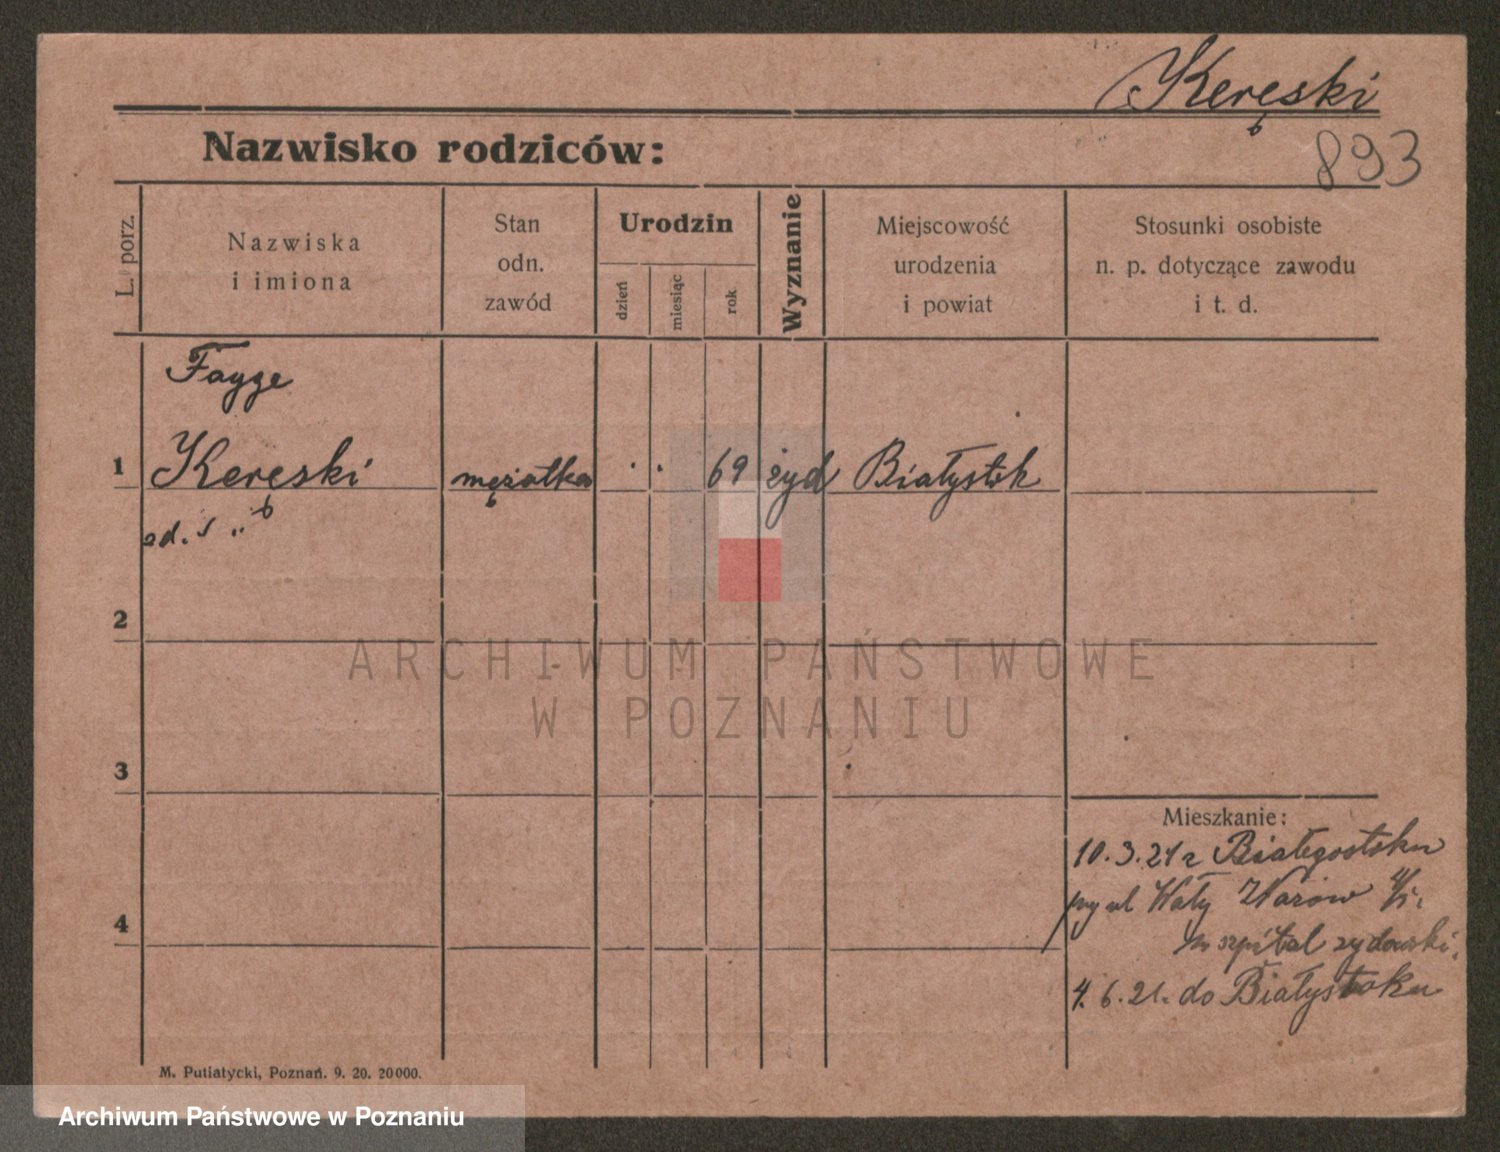 Keręski
893
Nazwisko rodziców:
L. porz.
Nazwiska
i imiona
Stan
odn.
zawód
Urodzin
dzień
miesiąc
rok
Wyznanie
Miejscowość
urodzenia
i powiat
Stosunki osobiste
n. p. dotyczące zawodu
i t. d.
Fayge
1 Keręski mężatka . . 69 żyd Białystok
2
3
4
Mieszkanie:
10.3.21 z Białegostoku
Wały
szpital żydowski.
4.6.21. do Białystoku
M. Putiatycki, Poznań. 9. 20. 20000.
ARCHIWUM PAŃSTWOWE
W POZNANIU
Archiwum Państwowe w Poznaniu